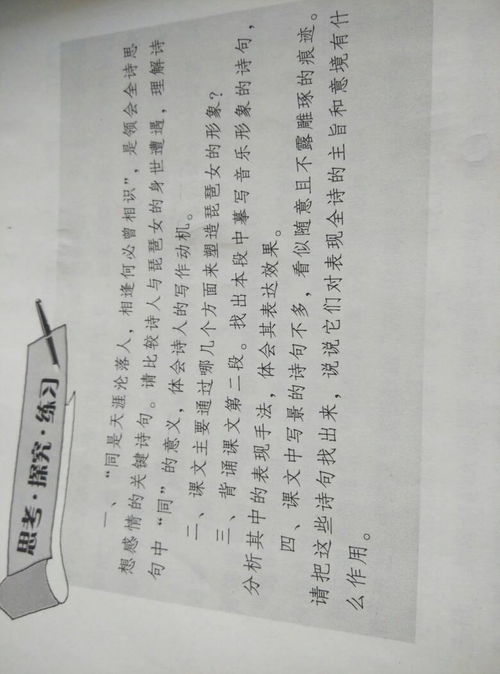 思考·探究·练习
一、“同是天涯沦落人，相逢何必曾相识”，是领会全诗思
想感情的关键诗句。请比较诗人与琵琶女的身世遭遇，理解诗
句中“同”的意义，体会诗人的写作动机。
二、课文主要通过哪几个方面来塑造琵琶女的形象？
三、背诵课文第二段。找出本段中摹写音乐形象的诗句，
分析其中的表现手法，体会其表达效果。
四、课文中写景的诗句不多，看似随意且不露雕琢的痕迹。
请把这些诗句找出来，说说它们对表现全诗的主旨和意境有什
么作用。